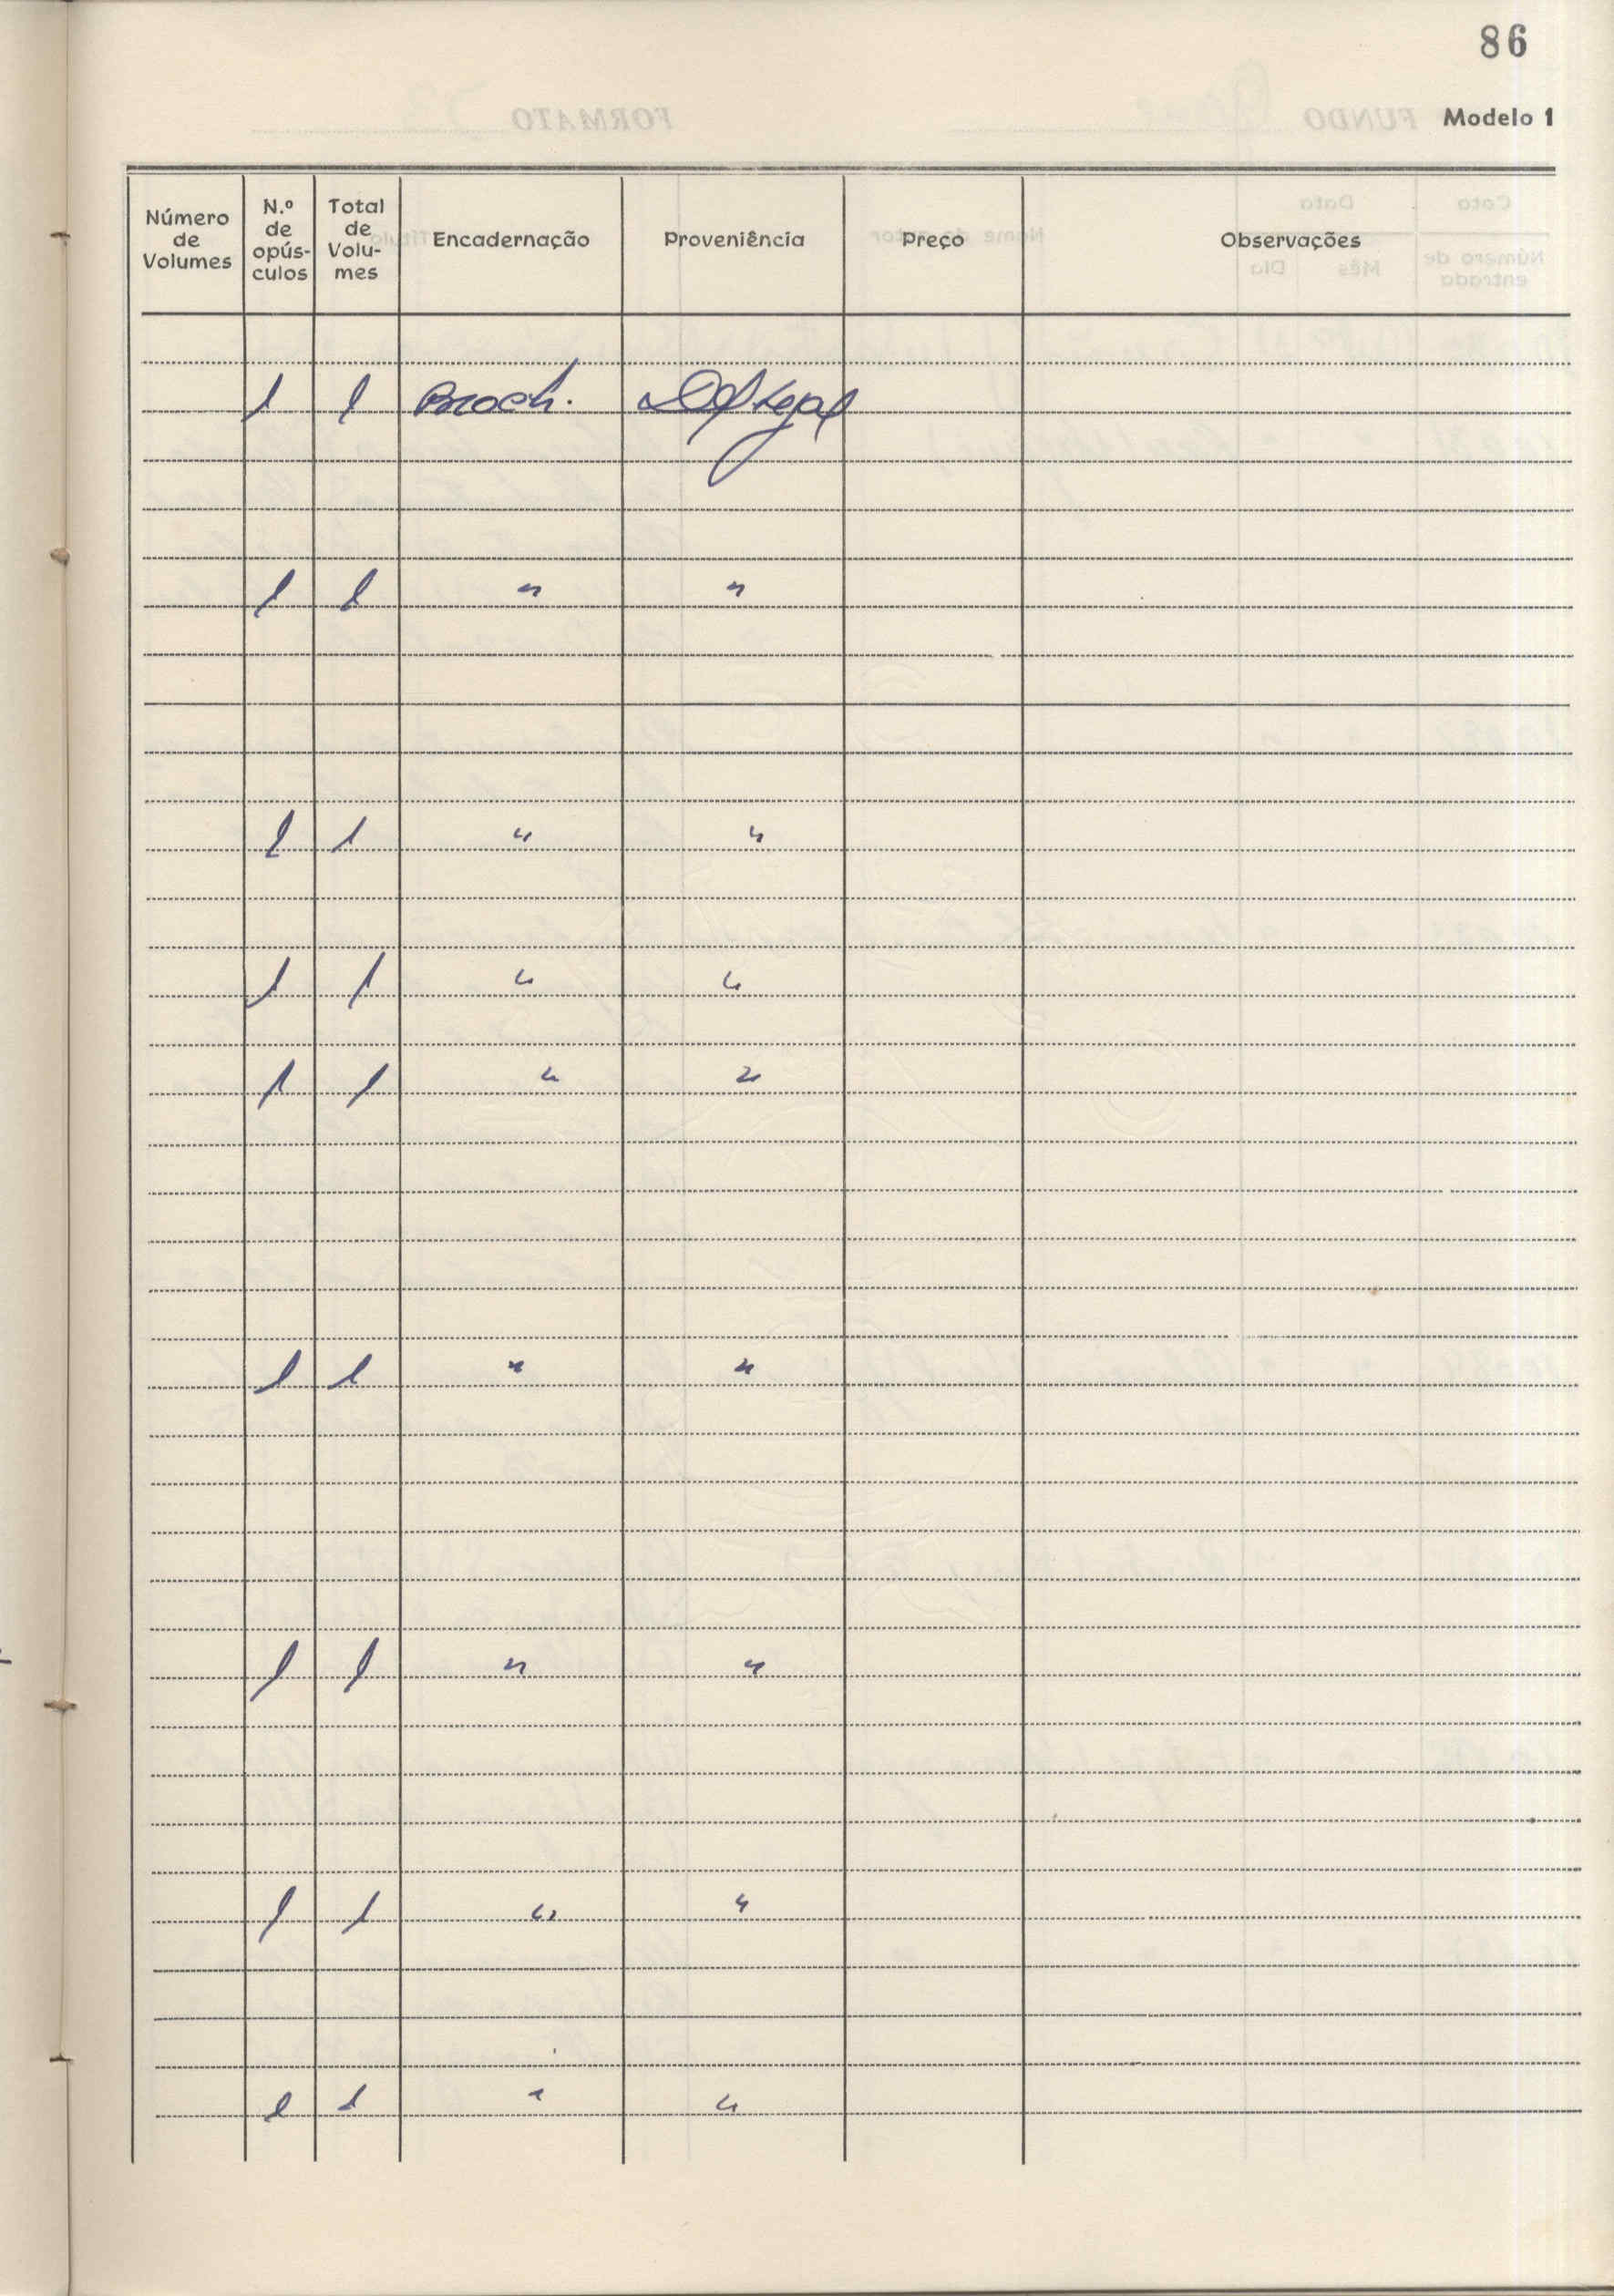 86
Modelo 1
Número de Volumes | N.º de opús-culos | Total de Volu-mes | Encadernação | Proveniência | Preço | Observações
1 1 Broch. Dep Legal
1 1 " "
1 1 " "
1 1 " "
1 1 " "
1 1 " "
1 1 " "
1 1 " "
1 1 " "